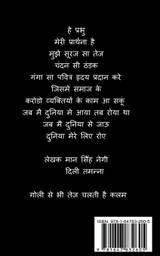 हे प्रभु
मेरी प्रार्थना है
मुझे सूरज सा तेज
चंदन सी ठंडक
गंगा सा पवित्र हृदय प्रदान करे
जिसमे समाज के
करोडो व्यक्तियों के काम आ सकूं
जब मैं दुनिया मे आया तब रोया था
जब मैं दुनिया से जाऊ
दुनिया मेरे लिए रोए
लेखक मान सिंह नेगी
दिली तमन्ना
गोली से भी तेज चलती है कलम